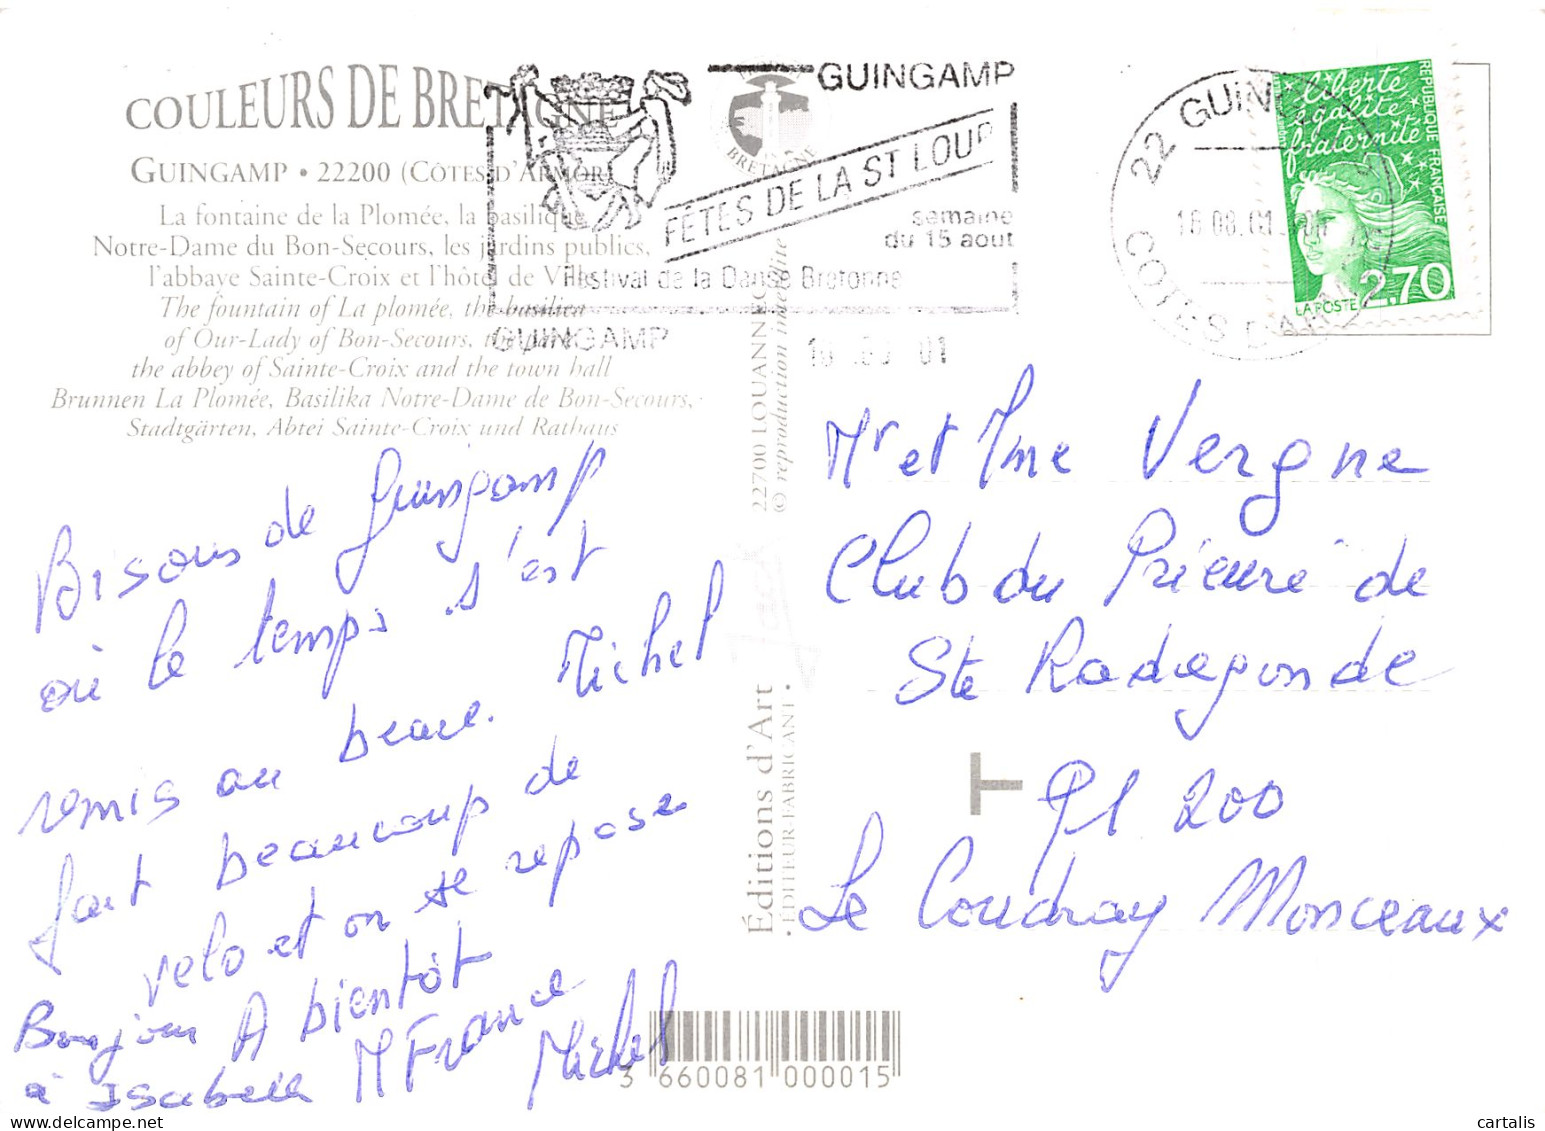 COULEURS DE BRETAGNE
GUINGAMP • 22200 (CÔTES D'ARMOR)
La fontaine de la Plomée, la basilique
Notre-Dame du Bon-Secours, les jardins publics,
l'abbaye Sainte-Croix et l'hôtel de Ville
The fountain of La plomée, the basilica
of Our-Lady of Bon-Secours, the park
the abbey of Sainte-Croix and the town hall
Brunnen La Plomée, Basilika Notre-Dame de Bon-Secours,
Stadtgärten, Abtei Sainte-Croix und Rathaus
BRETAGNE
GUINGAMP
FÊTES DE LA ST LOUP
semaine
du 15 aout
Festival de la Danse Bretonne
GUINGAMP
22 GUINGAMP
COTES D'ARMOR
liberté
égalité
fraternité
REPUBLIQUE FRANÇAISE
LA POSTE 2,70
Bisous de Guingamp
où le temps s'est
remis au beau. Michel
fait beaucoup de
velo et on se repose
A bientôt
M France
Michel
Bonjour
à Isabelle
22700 LOUANNEC
© reproduction interdite
Éditions d'Art
• ÉDITEUR-FABRICANT •
Mr et Mme Vergne
Club du Prieuré de
Ste Radegonde
91 200
Le Coudray Monceaux
3 660081 000015
cartalis